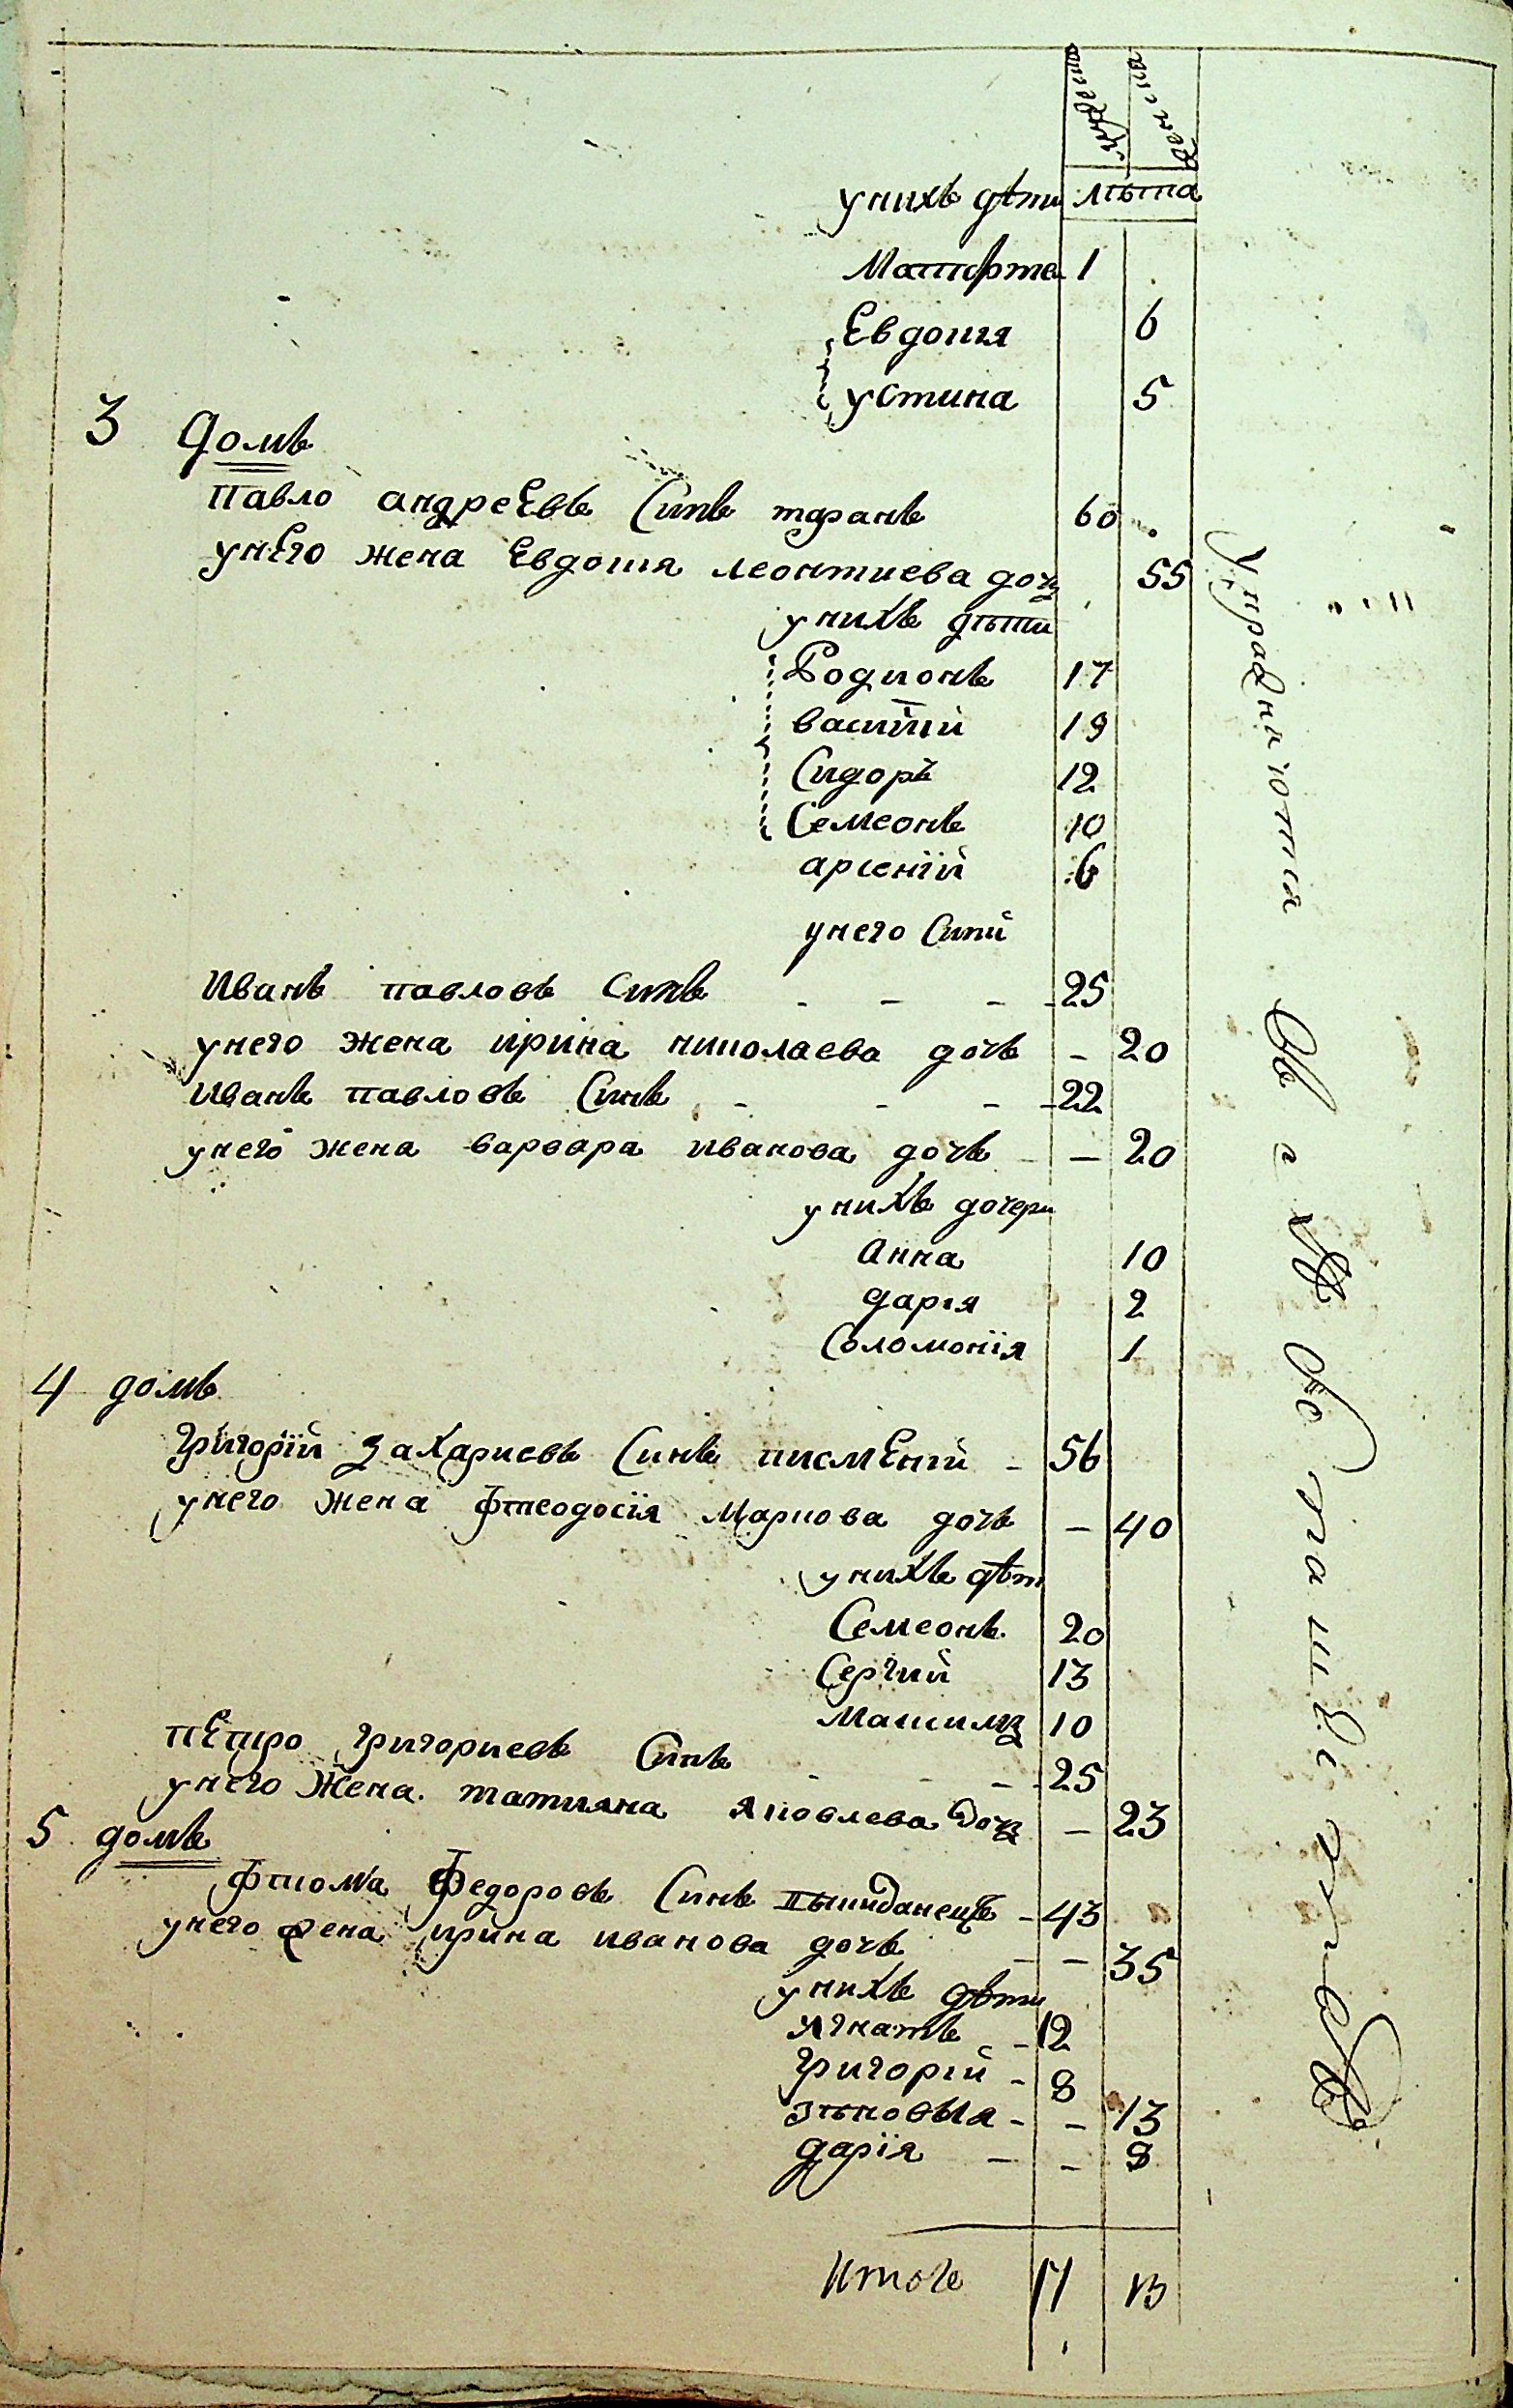 мужеска женска
унихъ дѣти лѣта
Матфте 1
Евдокия 6
устина 5
3 домъ
Павло андреЕвъ Синъ таранъ 60
унЕго жена Евдокия леонтиева доч 55
унихъ дѣти
Родионъ 17
василий 19
Сидоръ 12
Семеонъ 10
арсений 6
унего Сини
Иванъ павловъ Синъ 25
унего жена ирина николаева дочь 20
Иванъ павловъ Синъ 22
унего жена варвара иванова дочь 20
унихъ дочери
Анна 10
дария 2
Соломонїя 1
4 домъ
Григорїй Захариевъ Синъ писмЕний 56
унего жена фтеодосїя Маркова дочь 40
унихъ дѣти
Семеонъ 20
Сергий 13
Максимъ 10
пЕтро григориевъ Синъ 25
унего Жена татияна Яковлева дочъ 23
5 домъ
фтиома Федоровъ Синъ 43
унего жена ирина иванова дочь 35
унихъ дѣти
Игнатъ 12
Григорий 8
Зѣновѣя 13
дарїя 8
Итоге 17 13
Упражняются въ